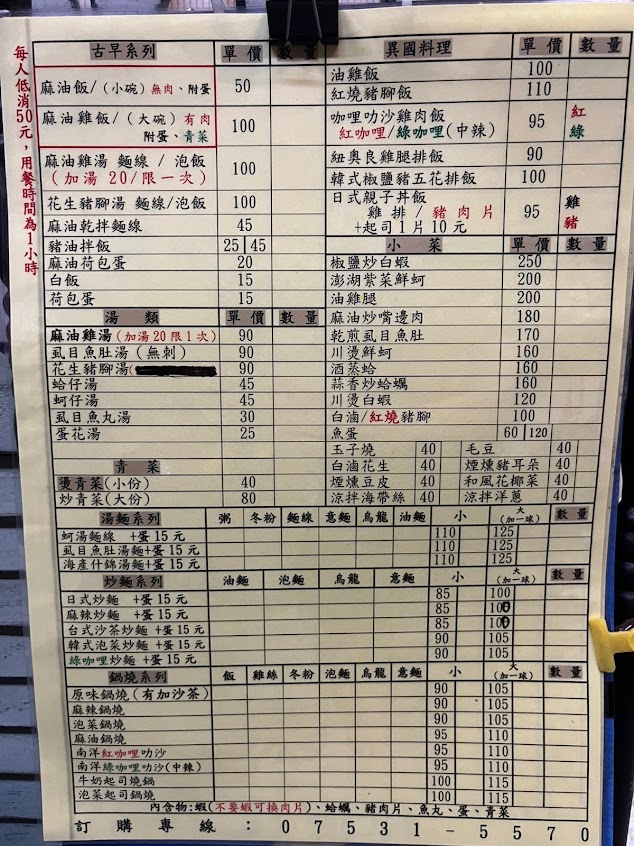 每人低消50元，用餐時間為1小時
古早系列 單價 數量
麻油飯/(小碗)無肉、附蛋 50
麻油雞飯/(大碗)有肉 100
附蛋、青菜
麻油雞湯 麵線/泡飯 100
(加湯20/限一次)
花生豬腳湯 麵線/泡飯 100
麻油乾拌麵線 45
豬油拌飯 25 45
麻油荷包蛋 20
白飯 15
荷包蛋 15
湯類 單價 數量
麻油雞湯(加湯20限1次) 90
虱目魚肚湯(無刺) 90
花生豬腳湯( 90
蛤仔湯 45
蚵仔湯 45
虱目魚丸湯 30
蛋花湯 25
青菜
燙青菜(小份) 40
炒青菜(大份) 80
異國料理 單價 數量
油雞飯 100
紅燒豬腳飯 110
咖哩叻沙雞肉飯 95 紅
紅咖哩/綠咖哩(中辣) 綠
紐奧良雞腿排飯 90
韓式椒鹽豬五花排飯 100
日式親子丼飯 95 雞
雞排/豬肉片 豬
+起司1片10元
小菜 單價 數量
椒鹽炒白蝦 250
澎湖紫菜鮮蚵 200
油雞腿 200
麻油炒嘴邊肉 180
乾煎虱目魚肚 170
川燙鮮蚵 160
酒蒸蛤 160
蒜香炒蛤蠣 160
川燙白蝦 120
白滷/紅燒豬腳 100
魚蛋 60 120
玉子燒 40 毛豆 40
白滷花生 40 煙燻豬耳朵 40
煙燻豆皮 40 和風花椰菜 40
涼拌海帶絲 40 涼拌洋蔥 40
湯麵系列 粥 冬粉 麵線 意麵 烏龍 油麵 小 大(加一球) 數量
蚵湯麵線 +蛋15元 110 125
虱目魚肚湯麵+蛋15元 110 125
海產什錦湯麵+蛋15元 110 125
炒麵系列 油麵 泡麵 烏龍 意麵 小 大(加一球) 數量
日式炒麵 +蛋15元 85 100
麻辣炒麵 +蛋15元 85 100
台式沙茶炒麵 +蛋15元 85 100
韓式泡菜炒麵 +蛋15元 90 105
綠咖哩炒麵 +蛋15元 90 105
鍋燒系列 飯 雞絲 冬粉 泡麵 烏龍 意麵 小 大(加一球) 數量
原味鍋燒(有加沙茶) 90 105
麻辣鍋燒 90 105
泡菜鍋燒 90 105
麻油鍋燒 95 110
南洋紅咖哩叻沙 95 110
南洋綠咖哩叻沙(中辣) 95 110
牛奶起司燒鍋 100 115
泡菜起司鍋燒 100 115
內含物:蝦(不要蝦可換肉片)、蛤蠣、豬肉片、魚丸、蛋、青菜
訂購專線:07531-5570